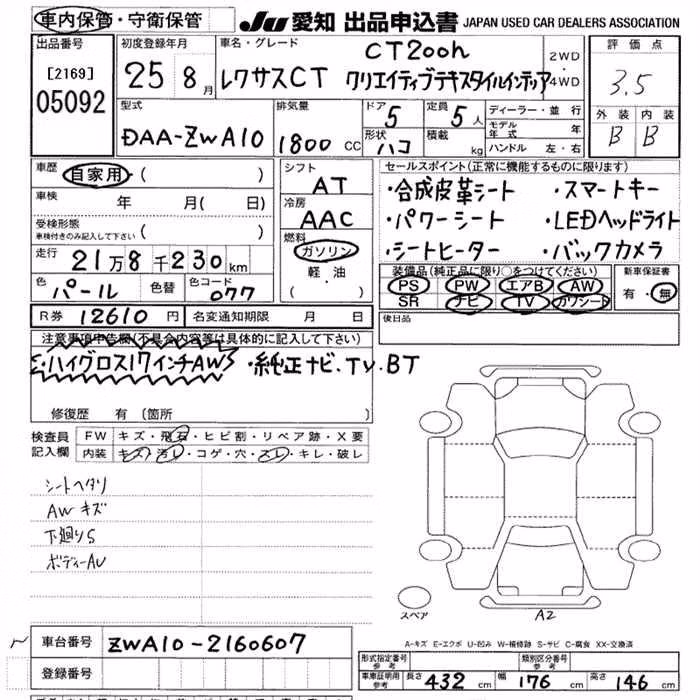 車内保管・守衛保管
JU 愛知 出品申込書 JAPAN USED CAR DEALERS ASSOCIATION
出品番号
[2169]
05092
初度登録年月
25 8月
車名・グレード
CT200h
レクサスCT クリエイティブテキスタイルインテリア
2WD
4WD
評価点
3.5
外装 内装
B B
型式
DAA-ZWA10
排気量
1800 CC
ドア 5
形状 ハコ
定員 5 人
積載 kg
ディーラー・並行
モデル年式 年
ハンドル 左・右
車歴 自家用 ( )
車検 年 月( 日)
受検形態
車検付きのみ記入して下さい ( )
走行 21万8千230km
色 パール 色替 色コード 077
R券 12610円 名変通知期限 月 日
シフト
AT
冷房
AAC
燃料
ガソリン
軽・油
( )
セールスポイント(正常に機能するものに限ります)
・合成皮革シート ・スマートキー
・パワーシート ・LEDヘッドライト
・シートヒーター ・バックカメラ
装備品(純正品に限り○をつけてください)
PS PW エアB AW
SR ナビ TV カワシート
新車保証書
有・無
後日品
注意事項申告欄(不具合内容等は具体的に記入して下さい)
ハイグロス17インチAW ・純正ナビ、TV、BT
修復歴 有(箇所 )
検査員
記入欄
FW キズ・飛石・ヒビ割・リペア跡・X要
内装 キズ・汚レ・コゲ・穴・スレ・キレ・破レ
シートヘタリ
AWキズ
下廻りS
ボディーAU
スペア
A2
A-キズ E-エクボ U-凹み W-補修跡 S-サビ C-腐食 XX-交換済
車台番号 ZWA10-2160607
登録番号
形式指定番号
参考
類別区分番号
参考
車庫証明用
参考
長さ 432 cm 幅 176 cm 高さ 146 cm